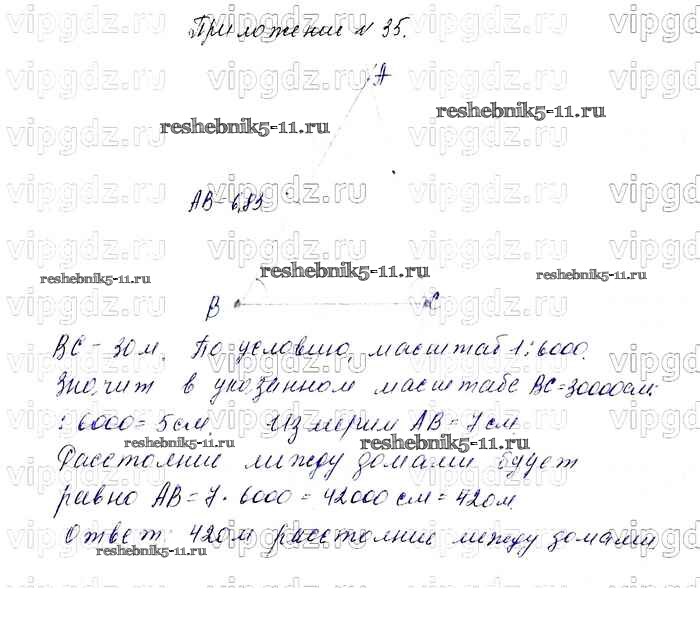 Приложение № 35.
A
reshebnik5-11.ru
reshebnik5-11.ru
AB - 6,83
reshebnik5-11.ru
reshebnik5-11.ru
reshebnik5-11.ru
B C
BC - 30 м. По условию, масштаб 1:6000.
Значит в указанном масштабе BC = 30000 см:
: 6000 = 5 см. Измерим AB = 7 см.
reshebnik5-11.ru
reshebnik5-11.ru
Расстояние между домами будет
равно AB = 7 · 6000 = 42000 см = 420 м.
Ответ: 420 м расстояние между домами
reshebnik5-11.ru
vipgdz.ru